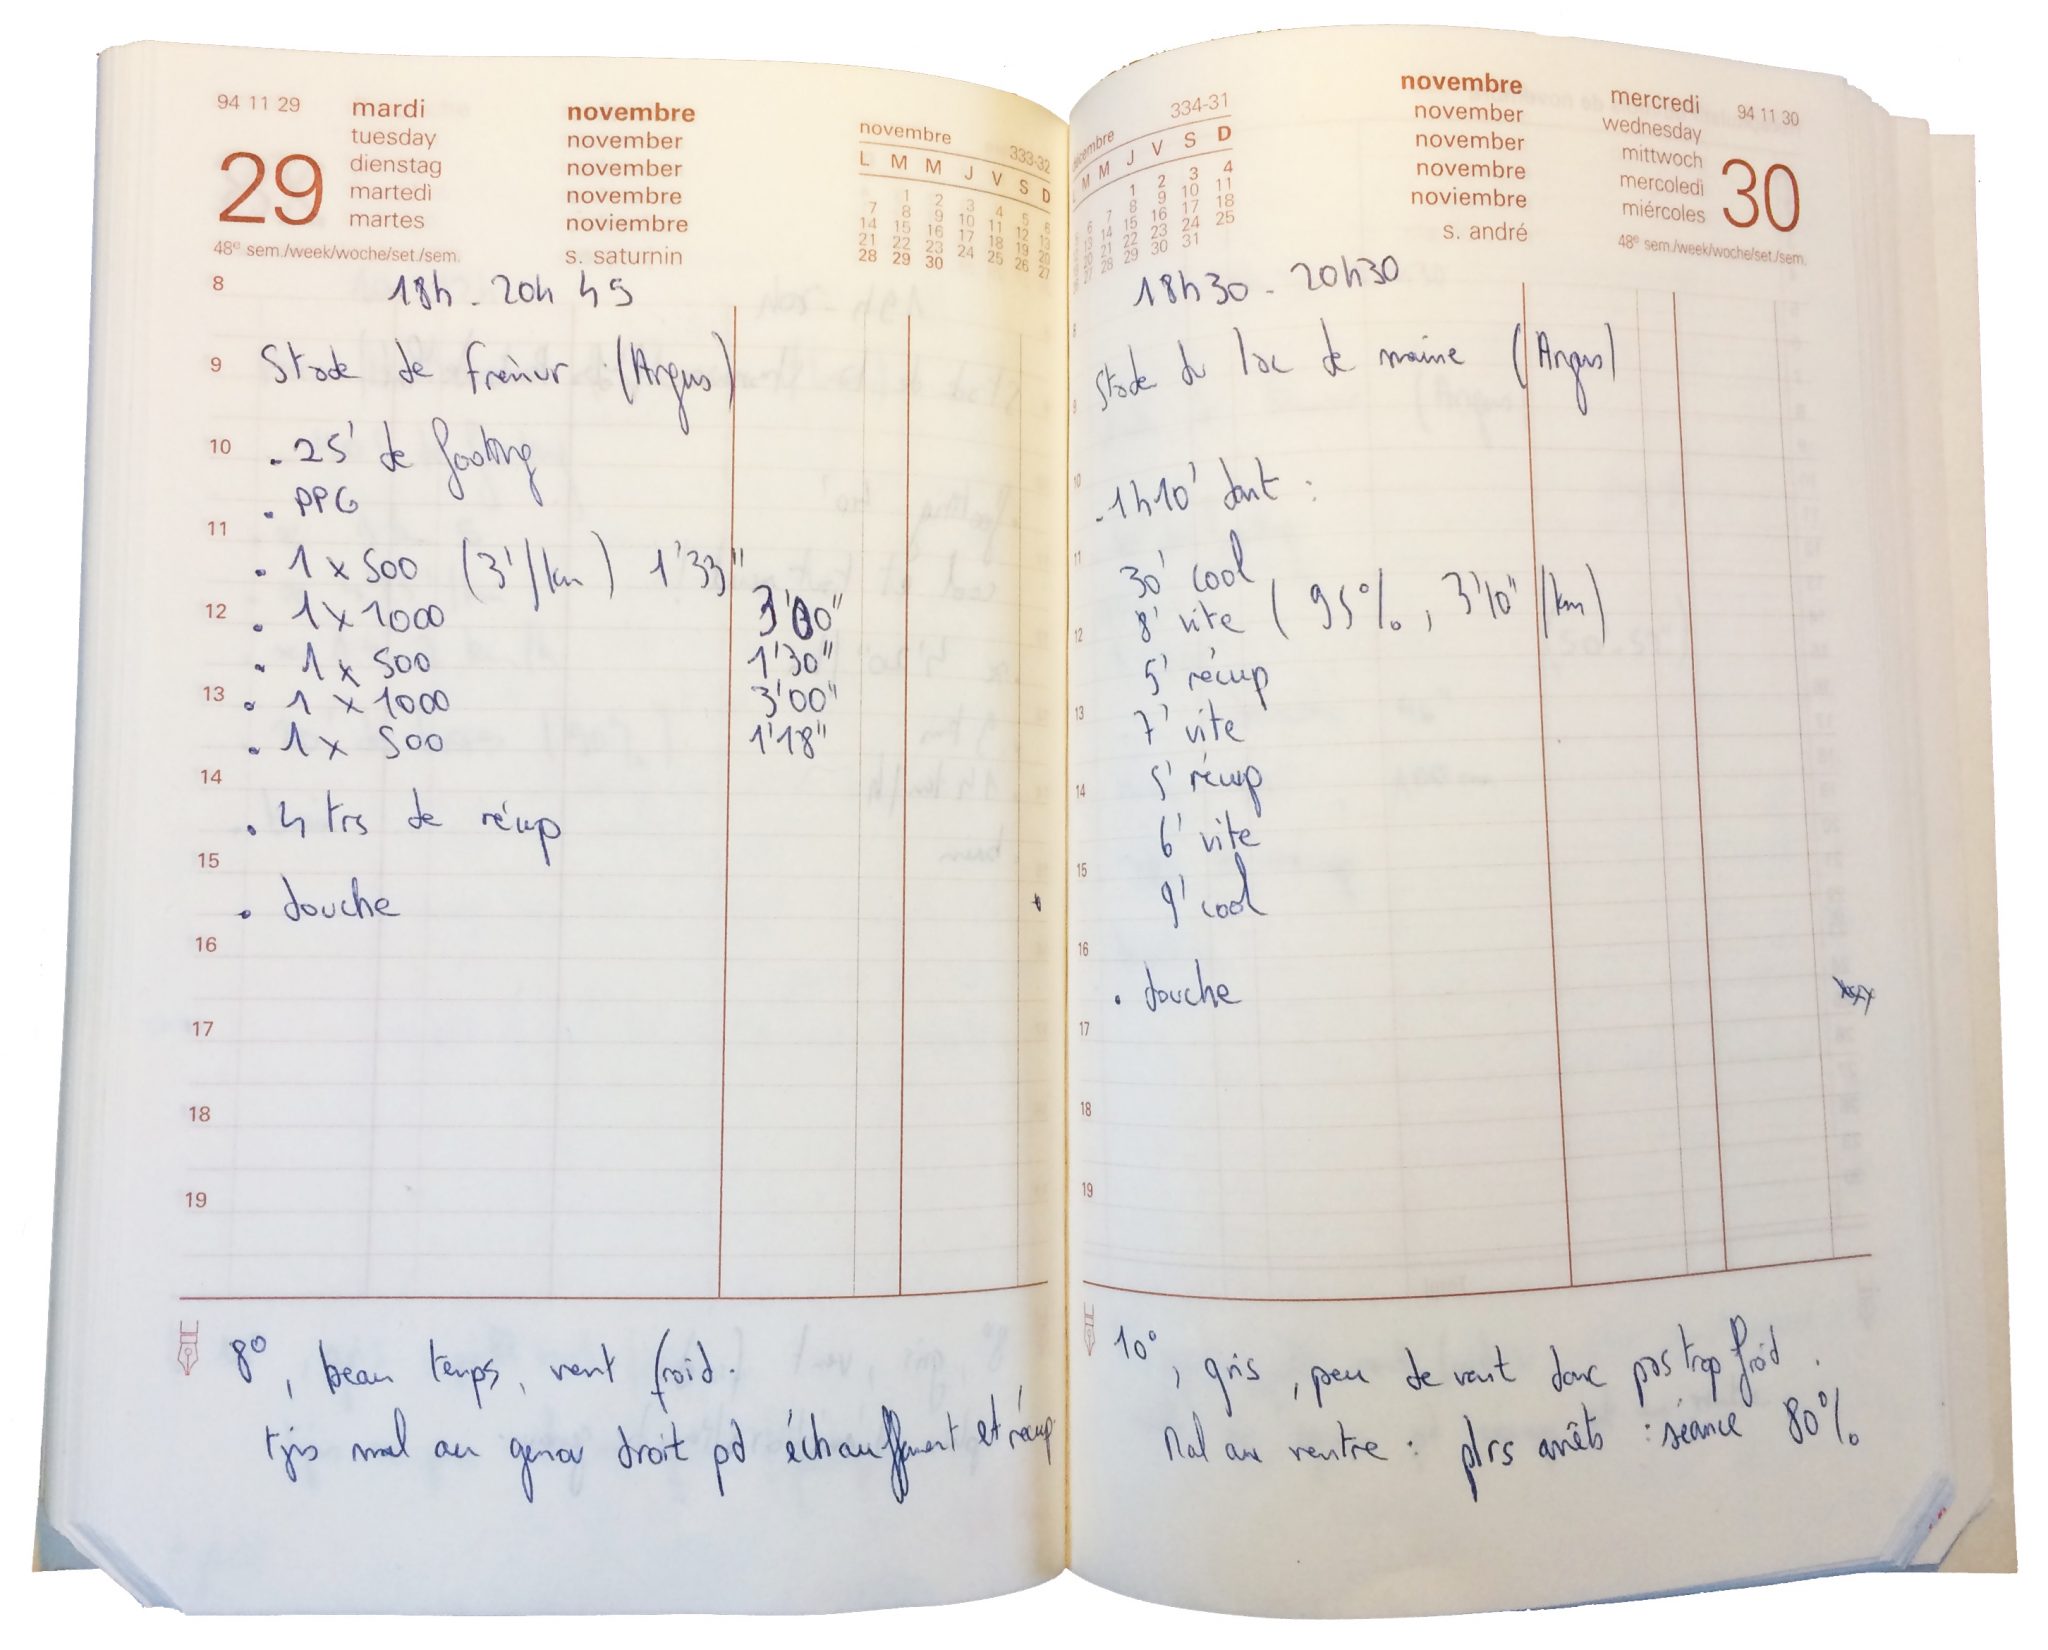 94 11 29 mardi novembre
tuesday november
dienstag november
martedì novembre
martes noviembre
29
48e sem./week/woche/set./sem. s. saturnin
novembre 333-32
L M M J V S D
1 2 3 4 5 6
7 8 9 10 11 12 13
14 15 16 17 18 19 20
21 22 23 24 25 26 27
28 29 30
8 18h - 20h 45
9 Stade de frémur (Argus)
10 . 25' de footing
. PPG
11
. 1 x 500 (3'/km) 1'33"
12 . 1 x 1000 3'00"
. 1 x 500 1'30"
13 . 1 x 1000 3'00"
. 1 x 500 1'18"
14
. 4 trs de récup
15
. douche
16
17
18
19
8°, beau temps, vent froid.
tjrs mal au genou droit pd échauffement et récup
décembre 334-31
L M M J V S D
1 2 3 4
5 6 7 8 9 10 11
12 13 14 15 16 17 18
19 20 21 22 23 24 25
26 27 28 29 30 31
novembre mercredi 94 11 30
november wednesday
november mittwoch
novembre mercoledì
noviembre miércoles
30
s. andré 48e sem./week/woche/set./sem.
18h30 - 20h30
8
Stade du lac de maine (Argus)
9
10
. 1h10' dont :
11
30' cool
8' vite (95%, 3'10"/km)
12
5' récup
13 7' vite
14 5' récup
6' vite
15
9' cool
16
. douche
17
18
19
10°, gris, peu de vent donc pas trop froid.
Mal au ventre : plrs arrêts : séance 80%